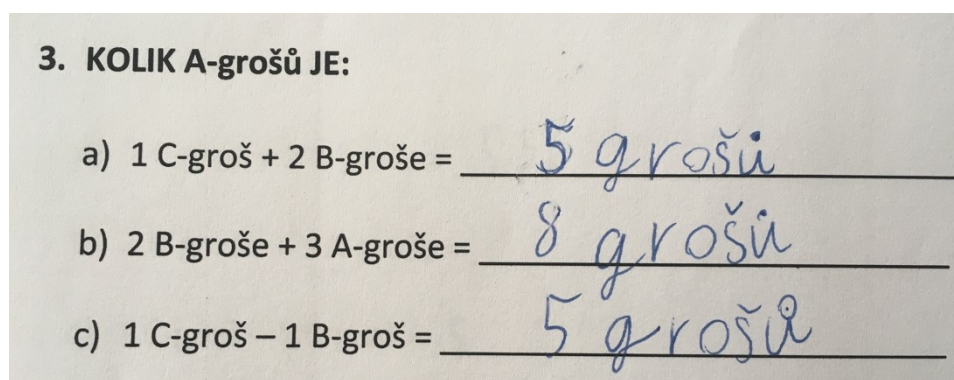 3. KOLIK A-grošů JE:
a) 1 C-groš + 2 B-groše = 5 grošů
b) 2 B-groše + 3 A-groše = 8 grošů
c) 1 C-groš – 1 B-groš = 5 grošů